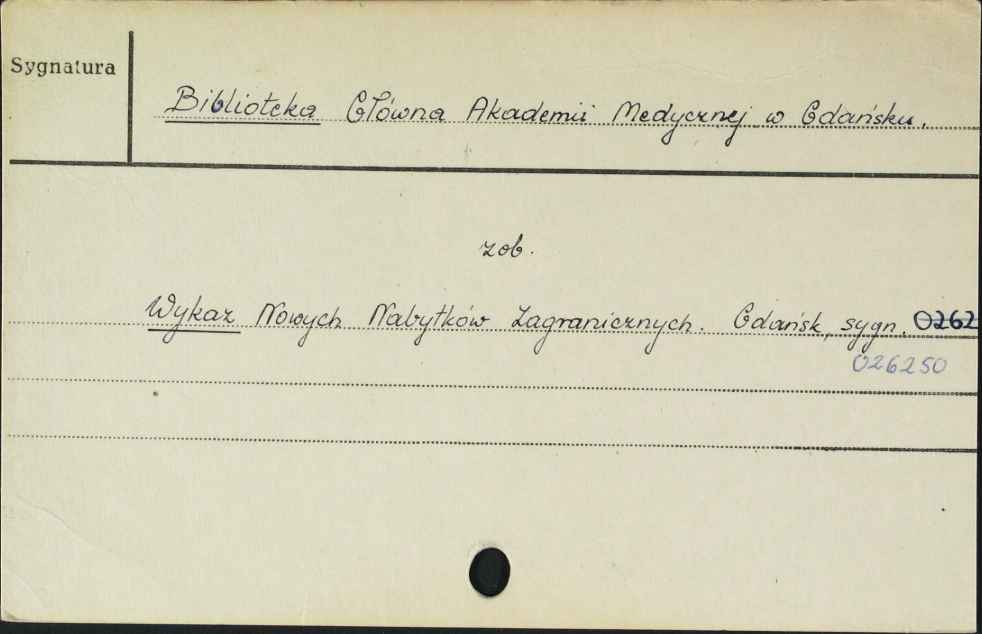 Sygnatura
Biblioteka Główna Akademii Medycznej w Gdańsku.
zob.
Wykaz Nowych Nabytków Zagranicznych. Gdańsk, sygn. 0262
026250